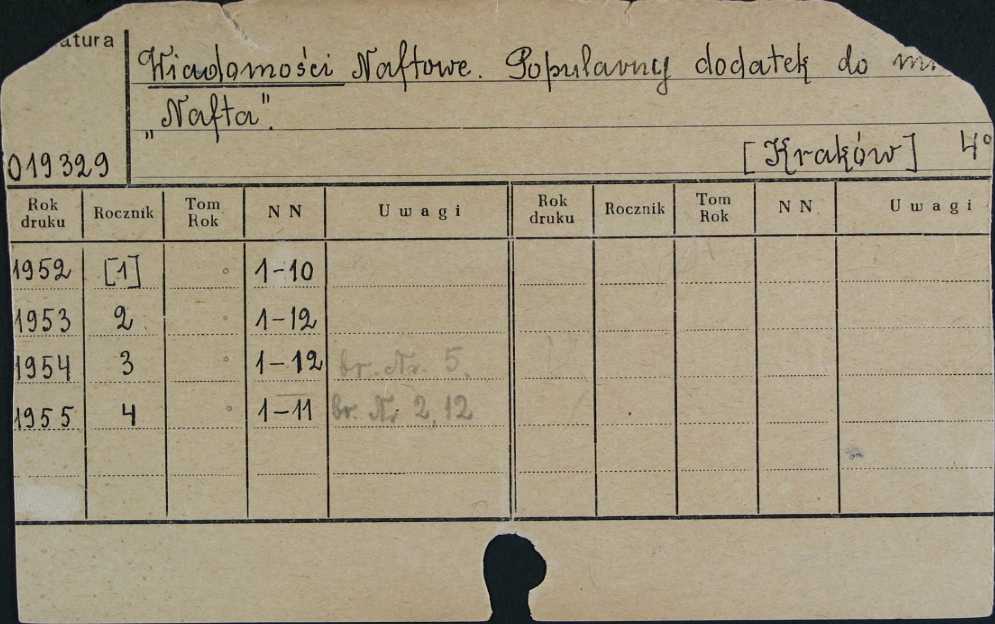 atura
Wiadomości Naftowe. Popularny dodatek do
„Nafta".
019329
[Kraków] 4°
Rok druku Rocznik Tom Rok NN Uwagi Rok druku Rocznik Tom Rok NN Uwagi
1952 [1] 1-10
1953 2 1-12
1954 3 1-12 br. Nr. 5.
1955 4 1-11 br. Nr 2, 12